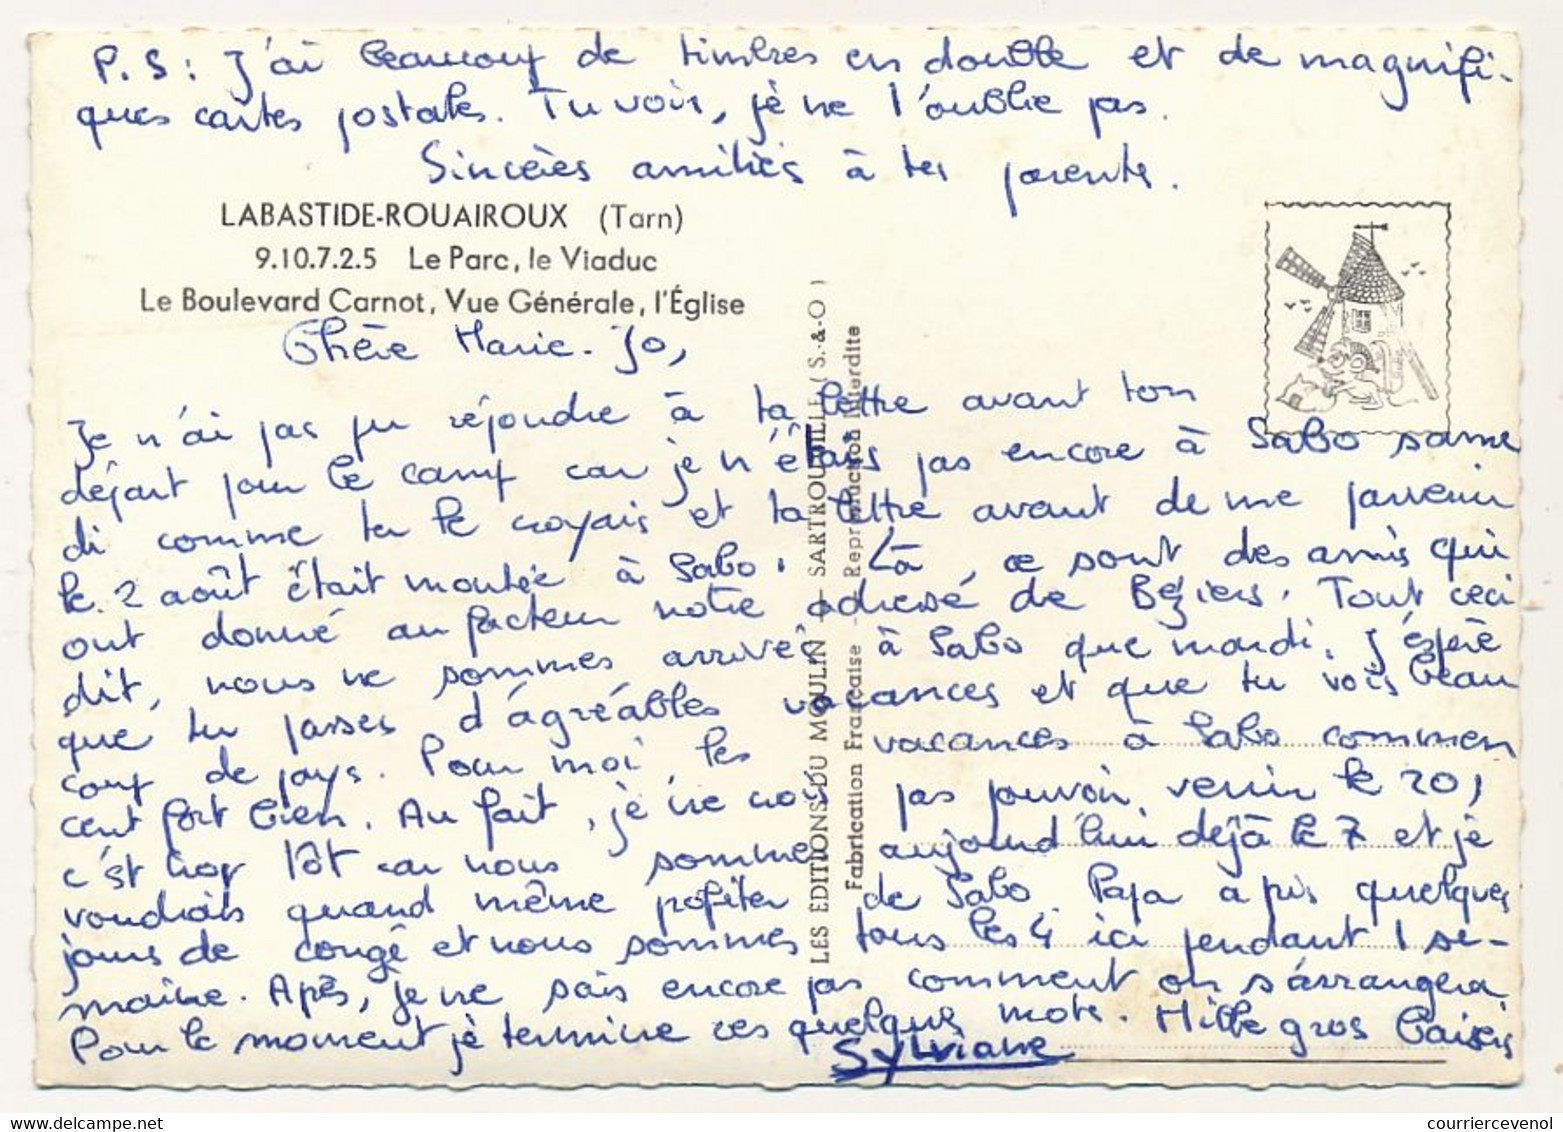 P.S : J'ai beaucoup de timbres en double et de magnifi-
ques cartes postales. Tu vois, je ne t'oublie pas.
Sincères amitiés à tes parents.
LABASTIDE-ROUAIROUX (Tarn)
9.10.7.2.5 Le Parc, le Viaduc
Le Boulevard Carnot, Vue Générale, l'Église
Chère Marie-Jo,
Je n'ai pas pu répondre à ta lettre avant ton
départ pour le camp car je n'étais pas encore à Sabo same
di comme tu le croyais et ta lettre avant de me parvenir
le 2 août était montée à Sabo. Là, ce sont des amis qui
ont donné au facteur notre adresse de Béziers. Tout ceci
dit, nous ne sommes arrivés à Sabo que mardi. J'espère
que tu passes d'agréables vacances et que tu vois beau
coup de pays. Pour moi, les vacances à Sabo commen
cent fort bien. Au fait, je ne crois pas pouvoir venir le 20,
c'est trop tôt car nous sommes aujourd'hui déjà le 7 et je
voudrais quand même profiter de Sabo. Papa a pris quelques
jours de congé et nous sommes tous les 4 ici pendant 1 se-
maine. Après, je ne sais encore pas comment on s'arrangera.
Pour le moment je termine ces quelques mots. Mille gros baisers
Sylviane
LES ÉDITIONS DU MOULIN - SARTROUVILLE (S.-&-O)
Fabrication Française - Reproduction Interdite
courriercevenol